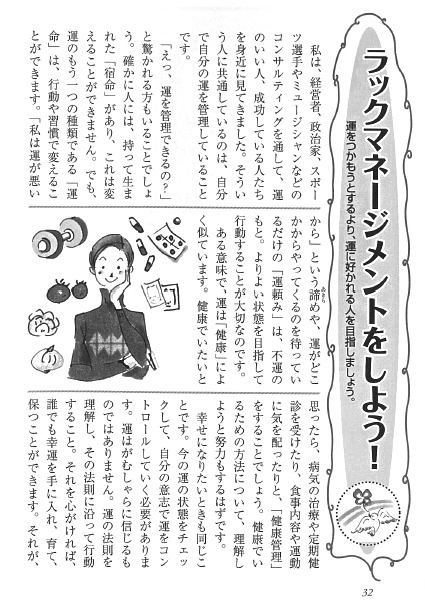 ラックマネージメントをしよう！
運をつかもうとするより、運に好かれる人を目指しましょう。
私は、経営者、政治家、スポー
ツ選手やミュージシャンなどの
コンサルティングを通して、運
のいい人、成功している人たち
を身近に見てきました。そうい
う人に共通しているのは、自分
で自分の運を管理していること
です。
「えっ、運を管理できるの？」
と驚かれる方もいることでしょ
う。確かに人には、持って生ま
れた「宿命」があり、これは変
えることができません。でも、
運のもう一つの種類である「運
命」は、行動や習慣で変えるこ
とができます。「私は運が悪い
から」という諦めや、運がどこ
あきら
かからやってくるのを待ってい
るだけの「運頼み」は、不運の
もと。よりよい状態を目指して
行動することが大切なのです。
ある意味で、運は「健康」によ
く似ています。健康でいたいと
思ったら、病気の治療や定期健
診を受けたり、食事内容や運動
に気を配ったりと、「健康管理」
をすることでしょう。健康でい
るための方法について、理解し
ようと努力もするはずです。
幸せになりたいときも同じこ
とです。今の運の状態をチェッ
クして、自分の意志で運をコン
トロールしていく必要がありま
す。運はがむしゃらに信じるも
のではありません。運の法則を
理解し、その法則に沿って行動
すること。それを心がければ、
誰でも幸運を手に入れ、育て、
保つことができます。それが、
32